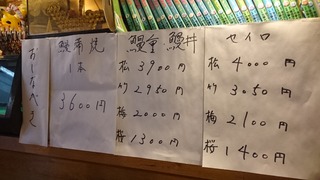 おしながき
鰻蒲焼
1本
3600円
鰻重 鰻丼
松 3900円
竹 2950円
梅 2000円
桜 1300円
セイロ
松 4000円
竹 3050円
梅 2100円
桜 1400円